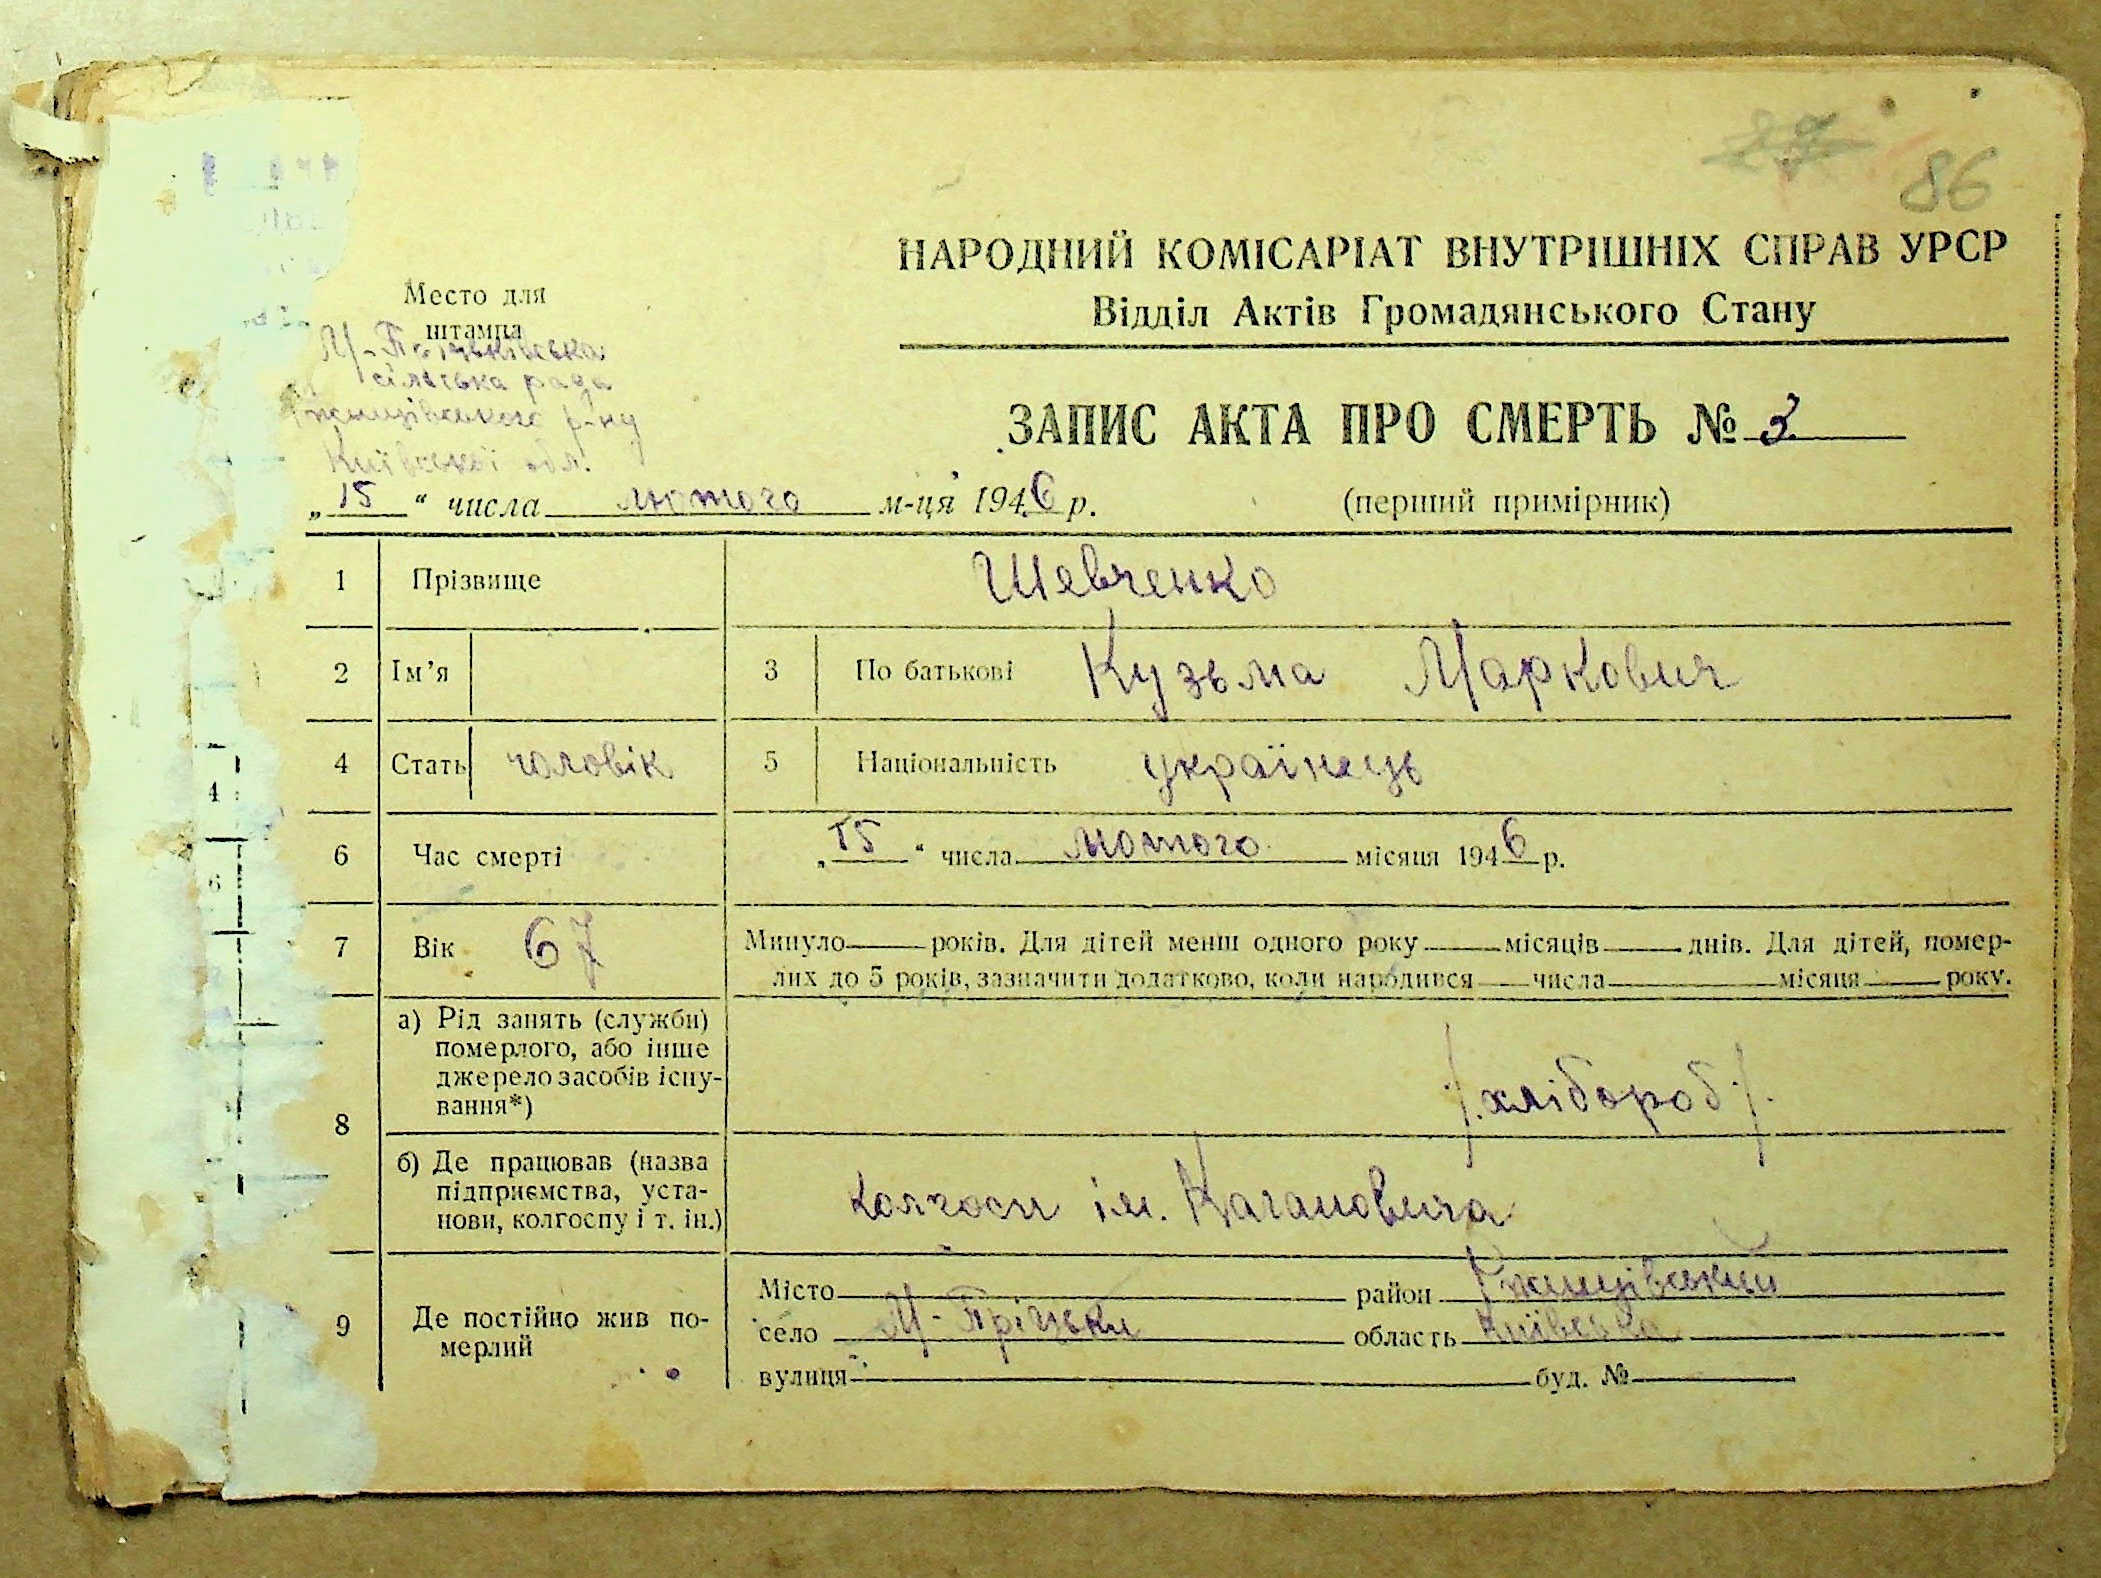 27
86
НАРОДНИЙ КОМІСАРІАТ ВНУТРІШНІХ СПРАВ УРСР
Відділ Актів Громадянського Стану
Место для
штампа
М-Пріцьківська
сільська рада
Ржищівського р-ну
Київської обл.
ЗАПИС АКТА ПРО СМЕРТЬ № 3
„15“ числа лютого м-ця 1946 р. (перший примірник)
1 Прізвище Шевченко
2 Ім’я 3 По батькові Кузьма Маркович
4 Стать чоловік 5 Національність українець
6 Час смерті „15“ числа лютого місяця 1946 р.
7 Вік 67 Минуло років. Для дітей менш одного року місяців днів. Для дітей, помер-
лих до 5 років, зазначити додатково, коли народився числа місяця року.
8 а) Рід занять (служби)
померлого, або інше
джерело засобів існу-
вання*)
/.хлібороб/.
б) Де працював (назва
підприємства, уста-
нови, колгоспу і т. ін.)
колгосп ім. Кагановича
9 Де постійно жив по-
мерлий
Місто район Ржищівський
село М-Пріцьки область Київська
вулиця буд. №
4
6